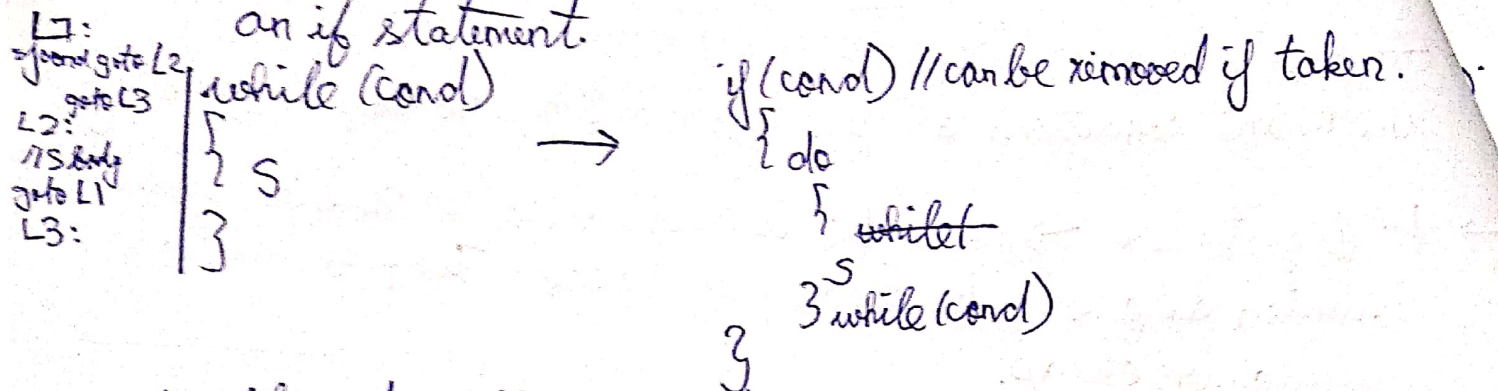 L1:
if cond goto L2
goto L3
L2:
//S body
goto L1
L3:
an if statement.
while (cond)
{
S
}
→
if (cond) // can be removed if taken.
{ do
{
whilet
S
} while (cond)
}